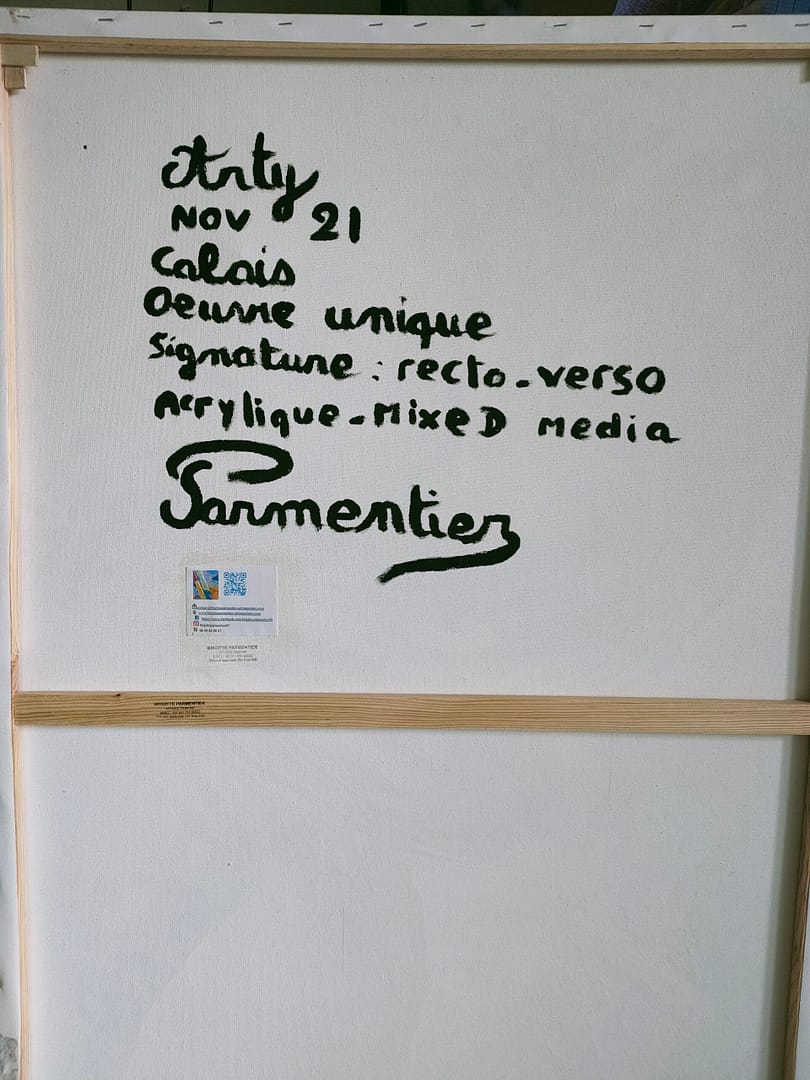 Arty
Nov 21
Calais
Oeuvre unique
Signature : recto-verso
Acrylique-MixeD media
Parmentier
BRIGITTE PARMENTIER
BRIGITTE PARMENTIER